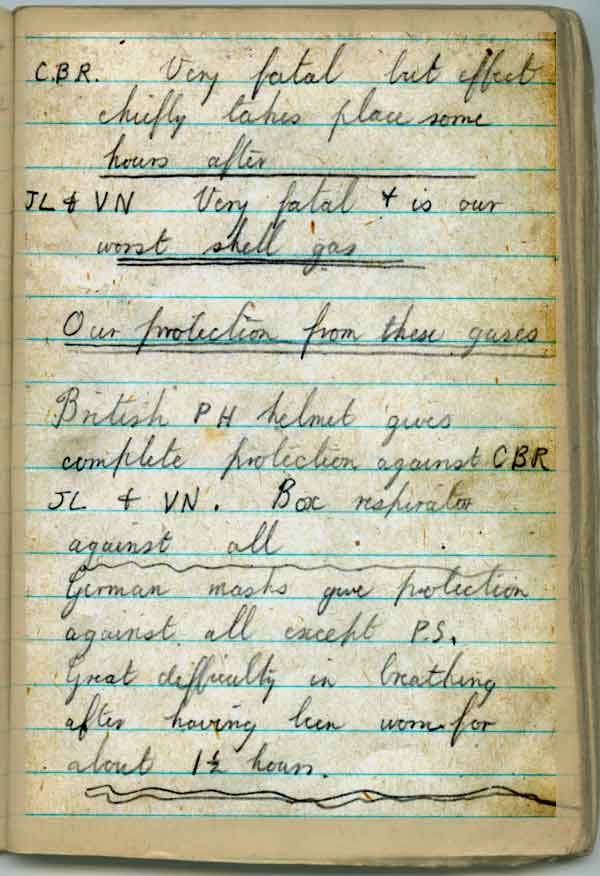 C.B.R. Very fatal but effect
chiefly takes place some
hours after
JL & VN Very fatal & is our
worst shell gas
Our protection from these gases
British PH helmet gives
complete protection against CBR
JL & VN. Box respirator
against all
German masks give protection
against all except P.S.
Great difficulty in breathing
after having been worn for
about 1½ hours.